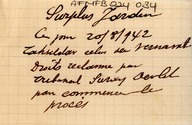 AFMFB 224 034
Surplus Jardin
Ce jour 20/8/942
Tahsildar celes de Vernamb
droits reclame par
tribunal Survey
pour commencer le
procès